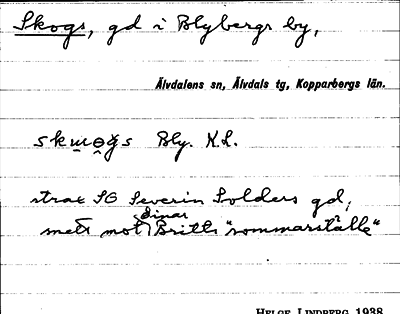 Skogs, gd i Blybergs by,
Älvdalens sn, Älvdals tg, Kopparbergs län.
skɯo̯ğs Bly. K.L.
strax SO Severin Solders gd,
Einar
mitt mot Britts "sommarställe"
HELGE LINDBERG 1938